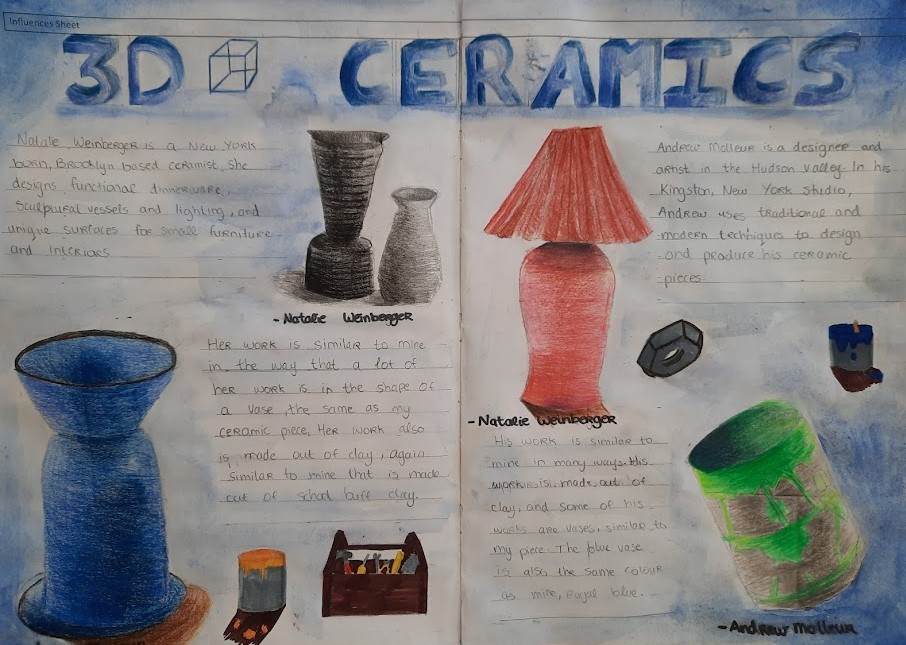 Influences Sheet
3D CERAMICS
Natalie Weinberger is a New York
born, Brooklyn based ceramist. She
designs functional dinnerware,
Sculptural vessels and lighting, and
unique surfaces for small furniture
and interiors
- Natalie Weinberger
Her work is similar to mine
in the way that a lot of
her work is in the shape of
a vase the same as my
ceramic piece. Her work also
is made out of clay, again
similar to mine that is made
out of school buff clay.
Andrew Molleur is a designer and
artist in the Hudson Valley. In his
Kingston, New York Studio,
Andrew uses traditional and
modern techniques to design
and produce his ceramic
pieces.
- Natalie Weinberger
His work is similar to
mine in many ways. His
work is made out of
clay, and some of his
works are vases, similar to
my piece. The blue vase
is also the same colour
as mine, royal blue.
- Andrew Molleur